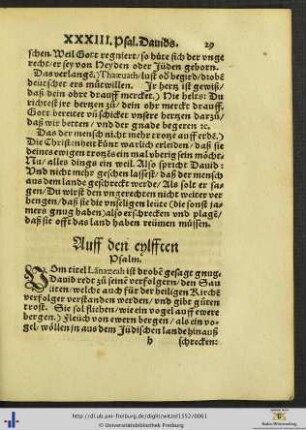 XXXIII. Psal. Dauids. 29
schen. Weil Gott regniert/ so hüte sich der vnge
recht/ er sey von Heyden oder Jüden geborn.
Das verlangẽ/ Thaauath/ lust od begird/ drobẽ
deutscher ers mütwillen. Jr hertz ist gewiß/
daß dein ohr drauff mercket.) Die helts: Du
richtest jre hertzen zů/ dein ohr merckt drauff.
Gott bereitet vñ schicket vnsere hertzen darzů/
daß wir betten/ vnd der gnade begeren ꝛc.
Das der mensch nicht mehr trotze auff erdẽ.)
Die Christenheit künt warlich erleiden/ daß sie
deines ewigen trotzẽs ein mal vberig sein möcht/
Nu/ alles dinge ein weil. Also spricht Dauid:
Vnd nicht mehr geschen lassest/ daß der mensch
aus dem lande geschreckt werde/ Als solt er sa=
gen/ Du wirst den vngerechten nicht weiter ver
hengen/ daß sie die vnseligen leüte (die sonst ja=
mers gnug haben) also erschrecken vnd plagẽ/
daß sie offt das land haben reümen müssen.
Auff den eylfften
Psalm.
VOm titel Lánazeah ist drobẽ gesagt gnug.
Dauid redt zů seinẽ verfolgern/ den Sau
liten/ welche auch für der heiligen Kirchẽ
verfolger verstanden werden/ vnd gibt gůten
trost. Sie sol fliehen/ wie ein vogel auff ewere
bergen.) Fleüch von ewern bergen/ als ein vo=
gel/ wöllen jn aus dem Jüdischen lande hinauß
h schrecken:
http://dl.ub.uni-freiburg.de/diglit/witzel1552/0061
© Universitätsbibliothek Freiburg
Baden-Württemberg